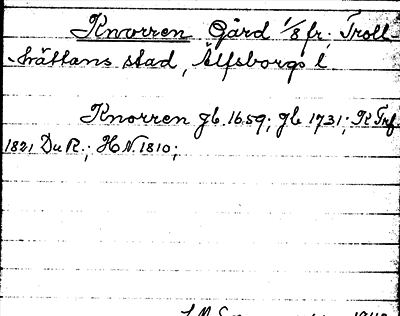 Knorren Gård 1/8 fr. Troll-
hättans stad, Älfsborgs l.
Knorren jb. 1659; jb 1731; R Trf
1821 Du R.; H N. 1810;